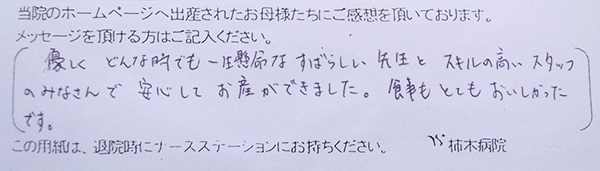 当院のホームページへ出産されたお母様たちにご感想を頂いております。
メッセージを頂ける方はご記入ください。
優しく どんな時でも 一生懸命な すばらしい 先生と スキルの高い スタッフ
のみなさんで 安心して お産ができました。 食事も とても おいしかった
です。
この用紙は、退院時にナースステーションにお持ちください。 柿木病院